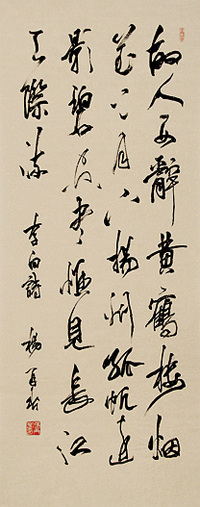 故人西辭黃鶴樓烟
花三月下揚州孤帆遠
影碧空盡惟見長江
天際流 李白詩 楊